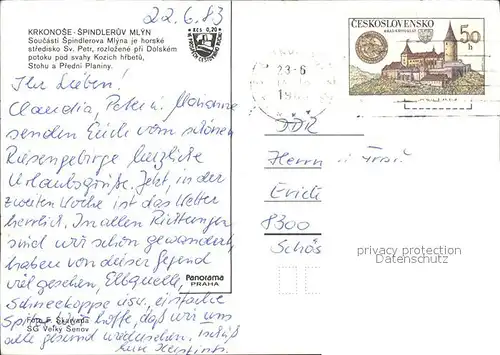 22.6.83
KRKONOŠE - ŠPINDLERŮV MLÝN
Součástí Špindlerova Mlýna je horské
středisko Sv. Petr, rozložené při Dolském
potoku pod svahy Kozích hřbetů,
Stohu a Přední Planiny.
Kčs 0,20
Ihr Lieben!
Claudia, Peter u. Marianne
senden Euch vom schönen
Riesengebirge herzliche
Urlaubsgrüße. Jetzt, in der
zweiten Woche ist das Wetter
herrlich. In allen Richtungen
sind wir schon gewandert,
haben von dieser Gegend
viel gesehen, Elbquelle,
Schneekoppe usw. einfach
Spitze. Ich hoffe, daß wir uns
alle gesund wiedersehen. Tschüß
Foto F. Skřivada
SG Velký Šenov
Panorama
PRAHA
ČESKOSLOVENSKO
50 h
23-6
DDR
Herrn u. Frau
Erich
8300
privacy protection
Datenschutz